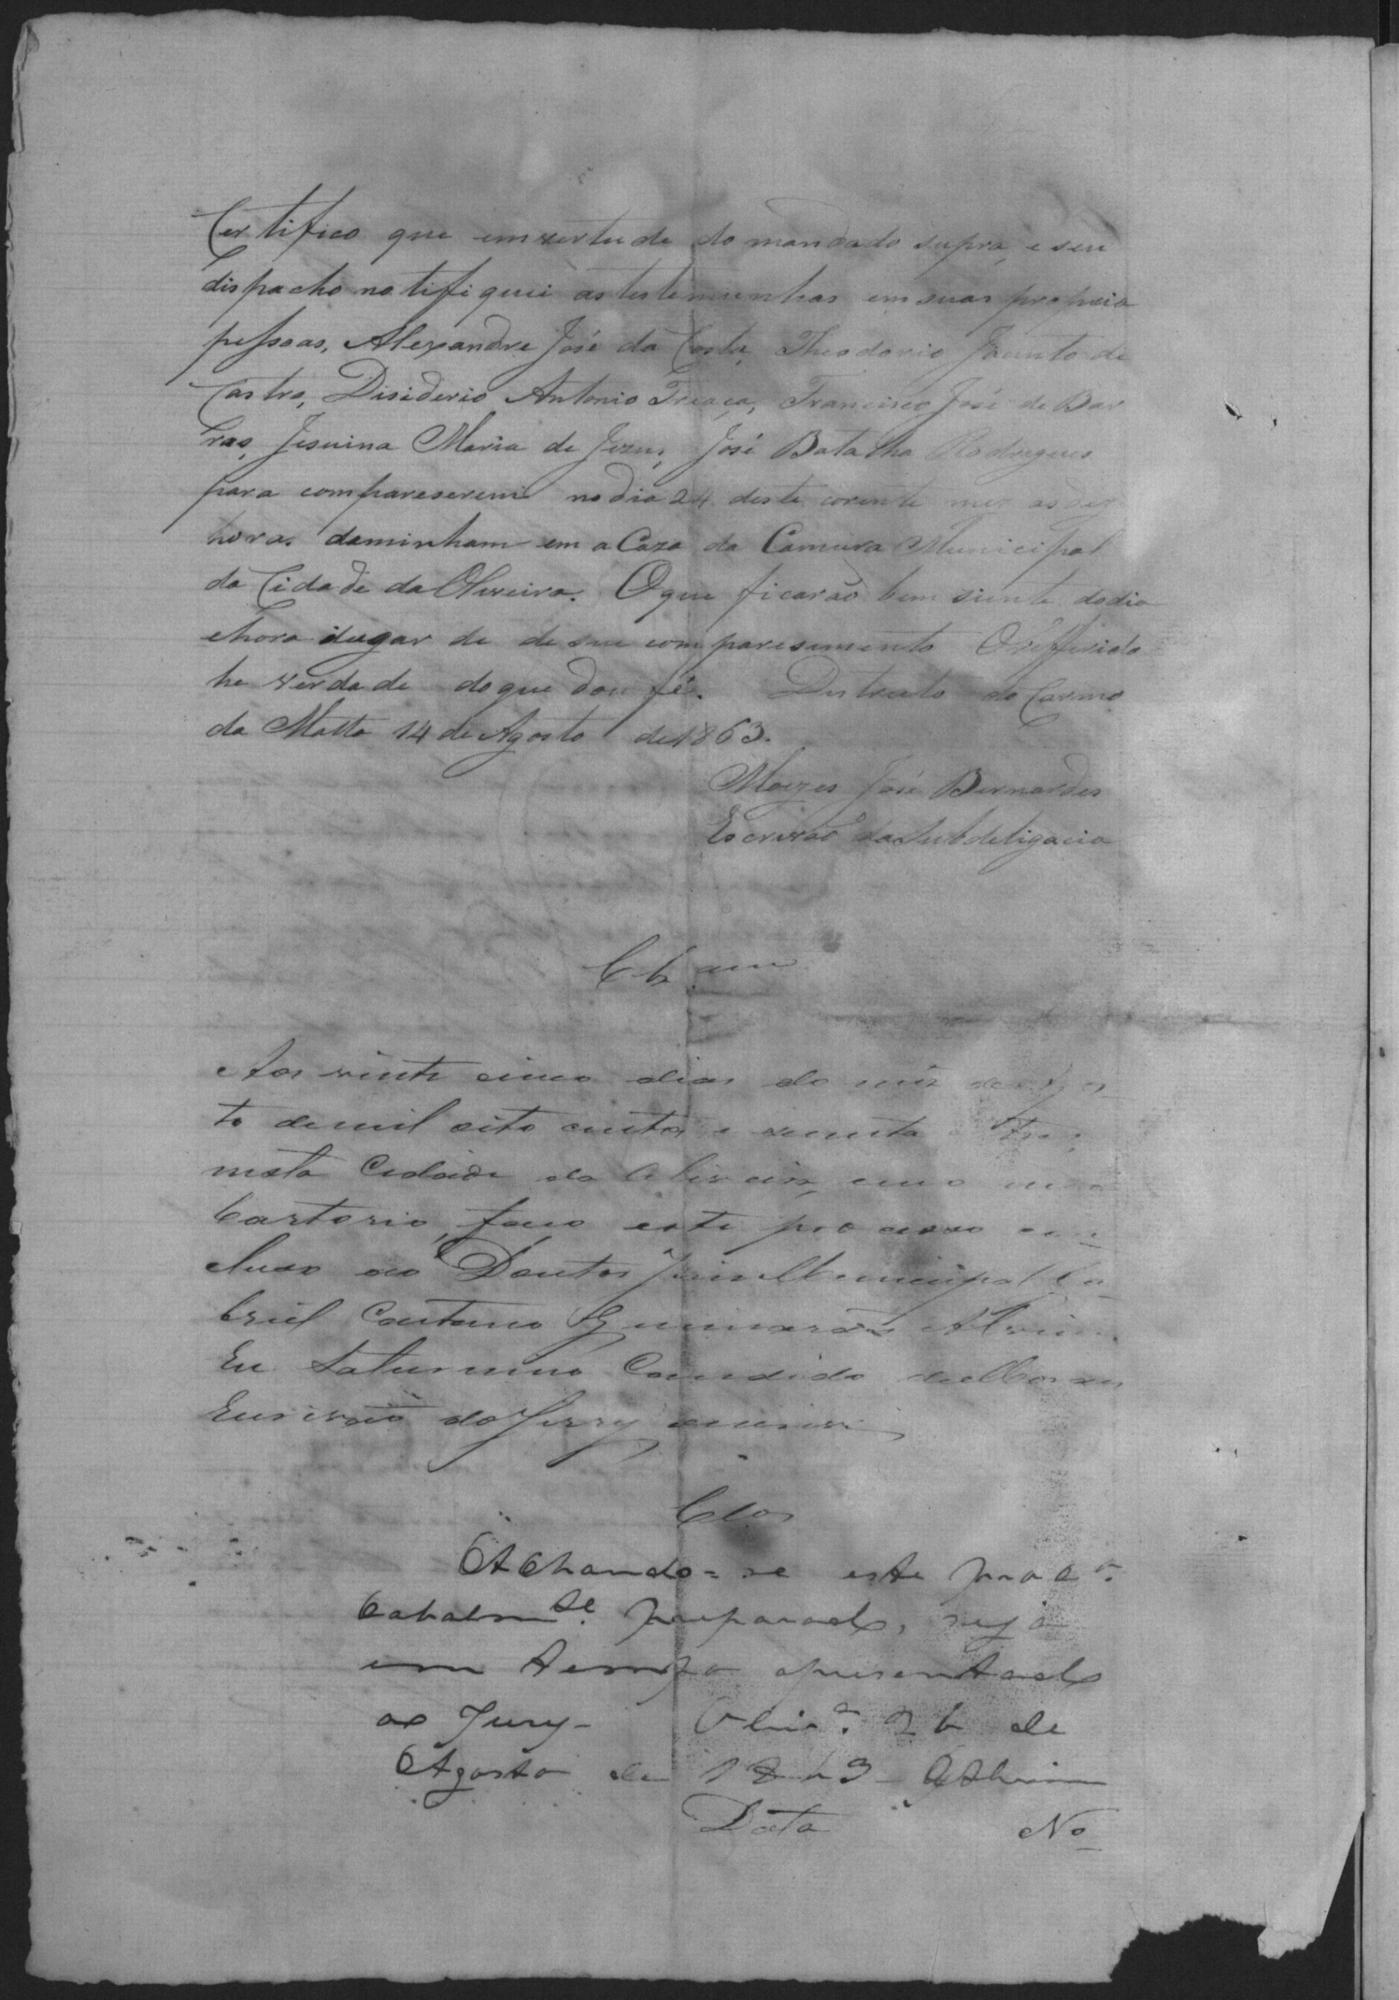 Certifico que em vertude do mandado supra, e seu
dispacho notifiquei as testemunhas em suas propria
pessoas, Alexandre José da Costa, Theodorio Jacinto de
Castro, Disiderio Antonio Treaça, Francisco José de Bar
ros, Jesuina Maria de Jezus, José Batalha Rodrigues
para compareserem no dia 24 deste corente mez as dez
horas damanham em a Caza da Camara Municipal
da Cidade da Oliveira. O que ficarão bem siente do dia
e hora e lugar de de seu comparesimento O refferido
he verdade do que dou fé. Distrito do Carmo
da Matta 14 de Agosto de 1863.
Moizes José Bernardes
Escrivão da Subdeligacia
Aos vinte cinco dias do mez de Agos
to de mil oito centos e secenta e tres
nesta Cidade da Oliveira, em o meu
Cartorio, faço este processo con
cluso ao Doutor Juiz Municipal Ga
briel Caetano Guimarães Alvim
Eu Saturnino Candido de Moraes
Escrivão do Jury escrivi
Clos
Achando-se este proc.º
Cabalm.te preparado, seja
em tempo apresentado
ao Jury - Olivr.ª 26 de
Agosto de 1863 - GAlvim
Data No